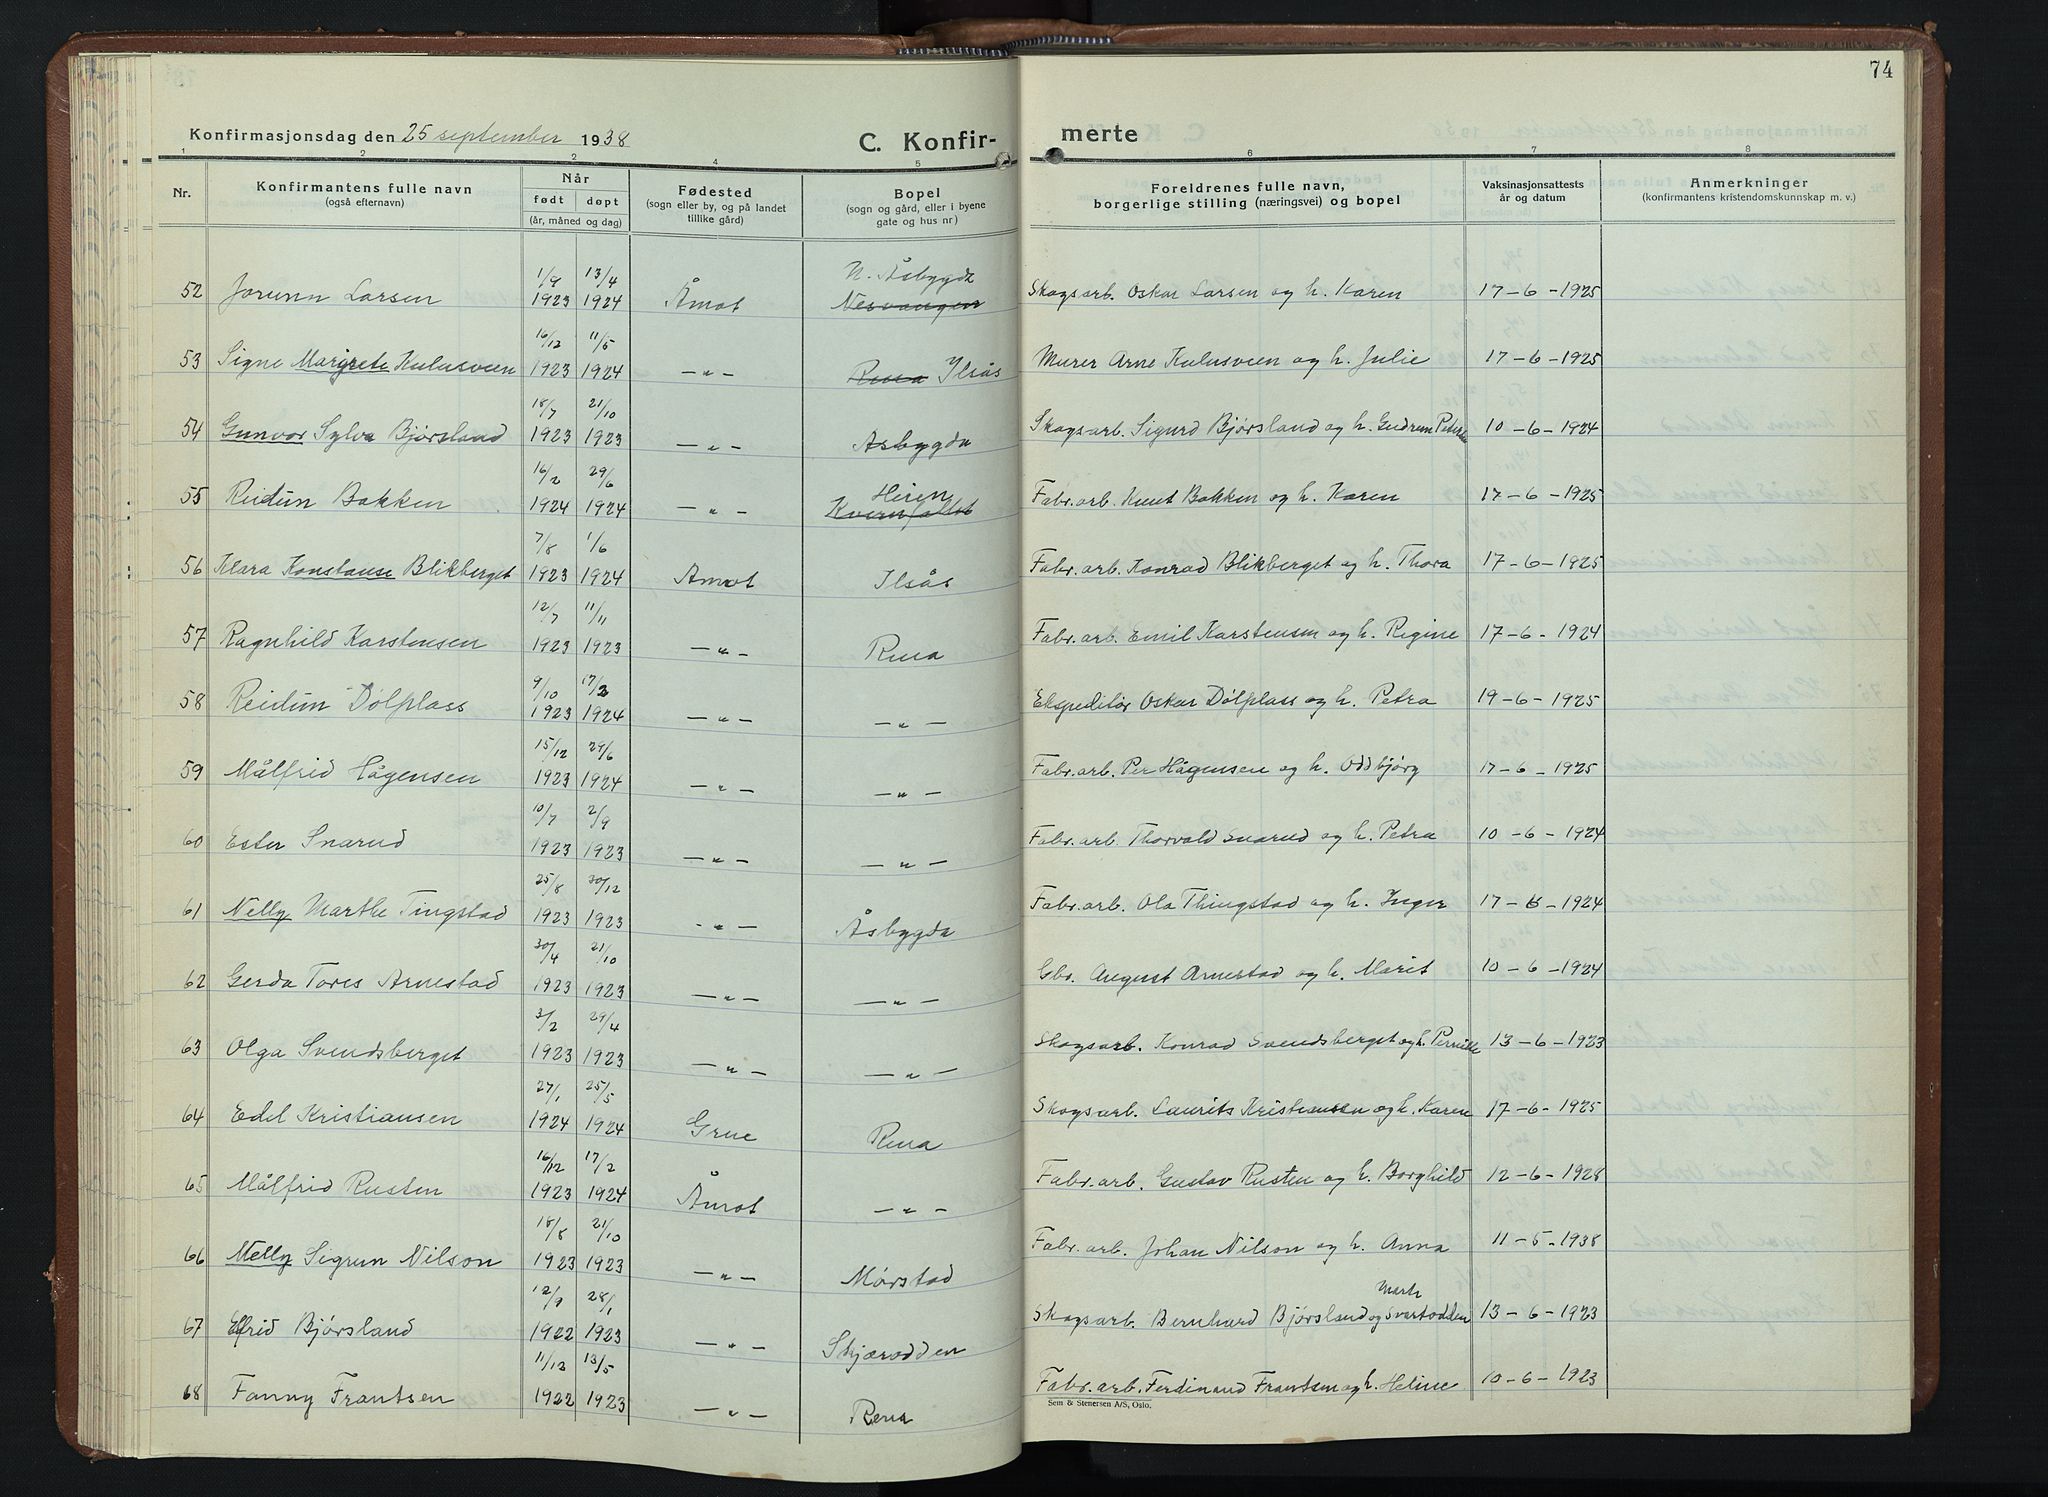 74
Konfirmasjonsdag den 25 september 1938 C. Konfir- merte
1 2 2 4 5 6 7 8
Nr. Konfirmantens fulle navn (også efternavn) Når født døpt (år, måned og dag) Fødested (sogn eller by, og på landet tillike gård) Bopel (sogn og gård, eller i byene gate og hus nr) Foreldrenes fulle navn, borgerlige stilling (næringsvei) og bopel Vaksinasjonsattests år og datum Anmerkninger (konfirmantens kristendomskunnskap m. v.)
52 Jorunn Larsen 1/9 1923 13/4 1924 Åmot N. Åsbygda Nesvangen Skogsarb. Oskar Larsen og h. Karen 17-6-1925
53 Signe Margrete Kulusveen 16/12 1923 11/5 1924 -„- Rena Ilsås Murer Arne Kulusveen og h. Julie 17-6-1925
54 Gunvor Sylva Bjørsland 18/7 1923 21/10 1923 -„- Åsbygda Skogsarb. Sigurd Bjørsland og h. Gudrun 10-6-1924
55 Reidun Bakken 16/2 1924 29/6 1924 -„- Heren Kvernfallet Fabr.arb. Knut Bakken og h. Karen 17-6-1925
56 Klara Konstanse Blikberget 7/8 1923 1/6 1924 Åmot Ilsås Fabr.arb. Konrad Blikberget og h. Thora 17-6-1925
57 Ragnhild Karstensen 12/7 1923 11/11 1923 -„- Rena Fabr.arb. Emil Karstensen og h. Regine 17-6-1924
58 Reidun Dølplass 9/10 1923 17/2 1924 -„- -„- Ekspeditør Oskar Dølplass og h. Petra 19-6-1925
59 Målfrid Hågensen 15/12 1923 29/6 1924 -„- -„- Fabr.arb. Per Hågensen og h. Oddbjørg 17-6-1925
60 Ester Snarud 10/7 1923 2/9 1923 -„- -„- Fabr.arb. Thorvald Snarud og h. Petra 10-6-1924
61 Nelly Marthe Tingstad 25/8 1923 30/12 1923 -„- Åsbygda Fabr.arb. Ola Thingstad og h. Inger 17-6-1924
62 Gerda Tores Arnestad 30/4 1923 21/10 1923 -„- -„- Gbr. August Arnestad og h. Marit 10-6-1924
63 Olga Svendsberget 3/2 1923 29/4 1923 -„- -„- Skogsarb. Konrad Svendsberget og h. Pernille 13-6-1923
64 Edel Kristiansen 27/1 1924 25/5 1924 Grue Rena Skogsarb. Laurits Kristiansen og h. Karen 17-6-1925
65 Målfrid Rusten 16/12 1923 17/2 1924 Åmot -„- Fabr.arb. Gustav Rusten og h. Borghild 12-6-1928
66 Nelly Sigrun Nilson 18/8 1923 21/10 1923 -„- Mørstad Fabr.arb. Johan Nilson og h. Anna 11-5-1938
67 Elfrid Bjørsland 12/9 1922 28/1 1923 -„- Skjærodden Skogsarb. Bernhard Bjørsland og Svartodden 13-6-1923
68 Fanny Frantsen 11/12 1922 13/5 1923 -„- Rena Fabr.arb. Ferdinand Frantsen og h. Heline 10-6-1923
Sem & Stenersen A/S, Oslo.